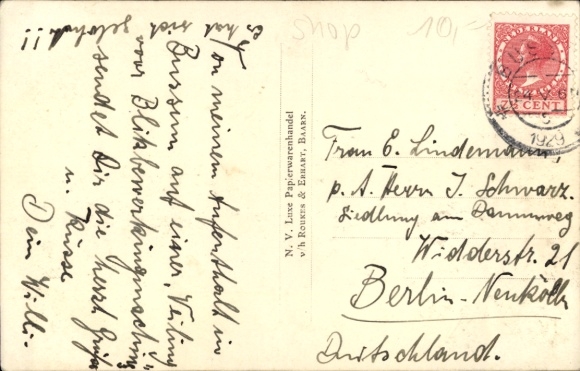 Von meinem Aufenthalt in
Bussum auf einer „Veiling
voor Blikbewerkingmachin"
sendet Dir die herzl. Grüße
u. Küsse
Dein Willi.
Es hat sich gelohnt!!!
N. V. Luxe Papierwarenhandel
v/h Roukes & Erhart, Baarn.
Shop 10,=
NEDERLAND
CENT
1929
Frau E. Lindemann,
p. A. Herrn J. Schwarz.
Siedlung am Dammweg
Widderstr. 21
Berlin-Neukölln
Deutschland.